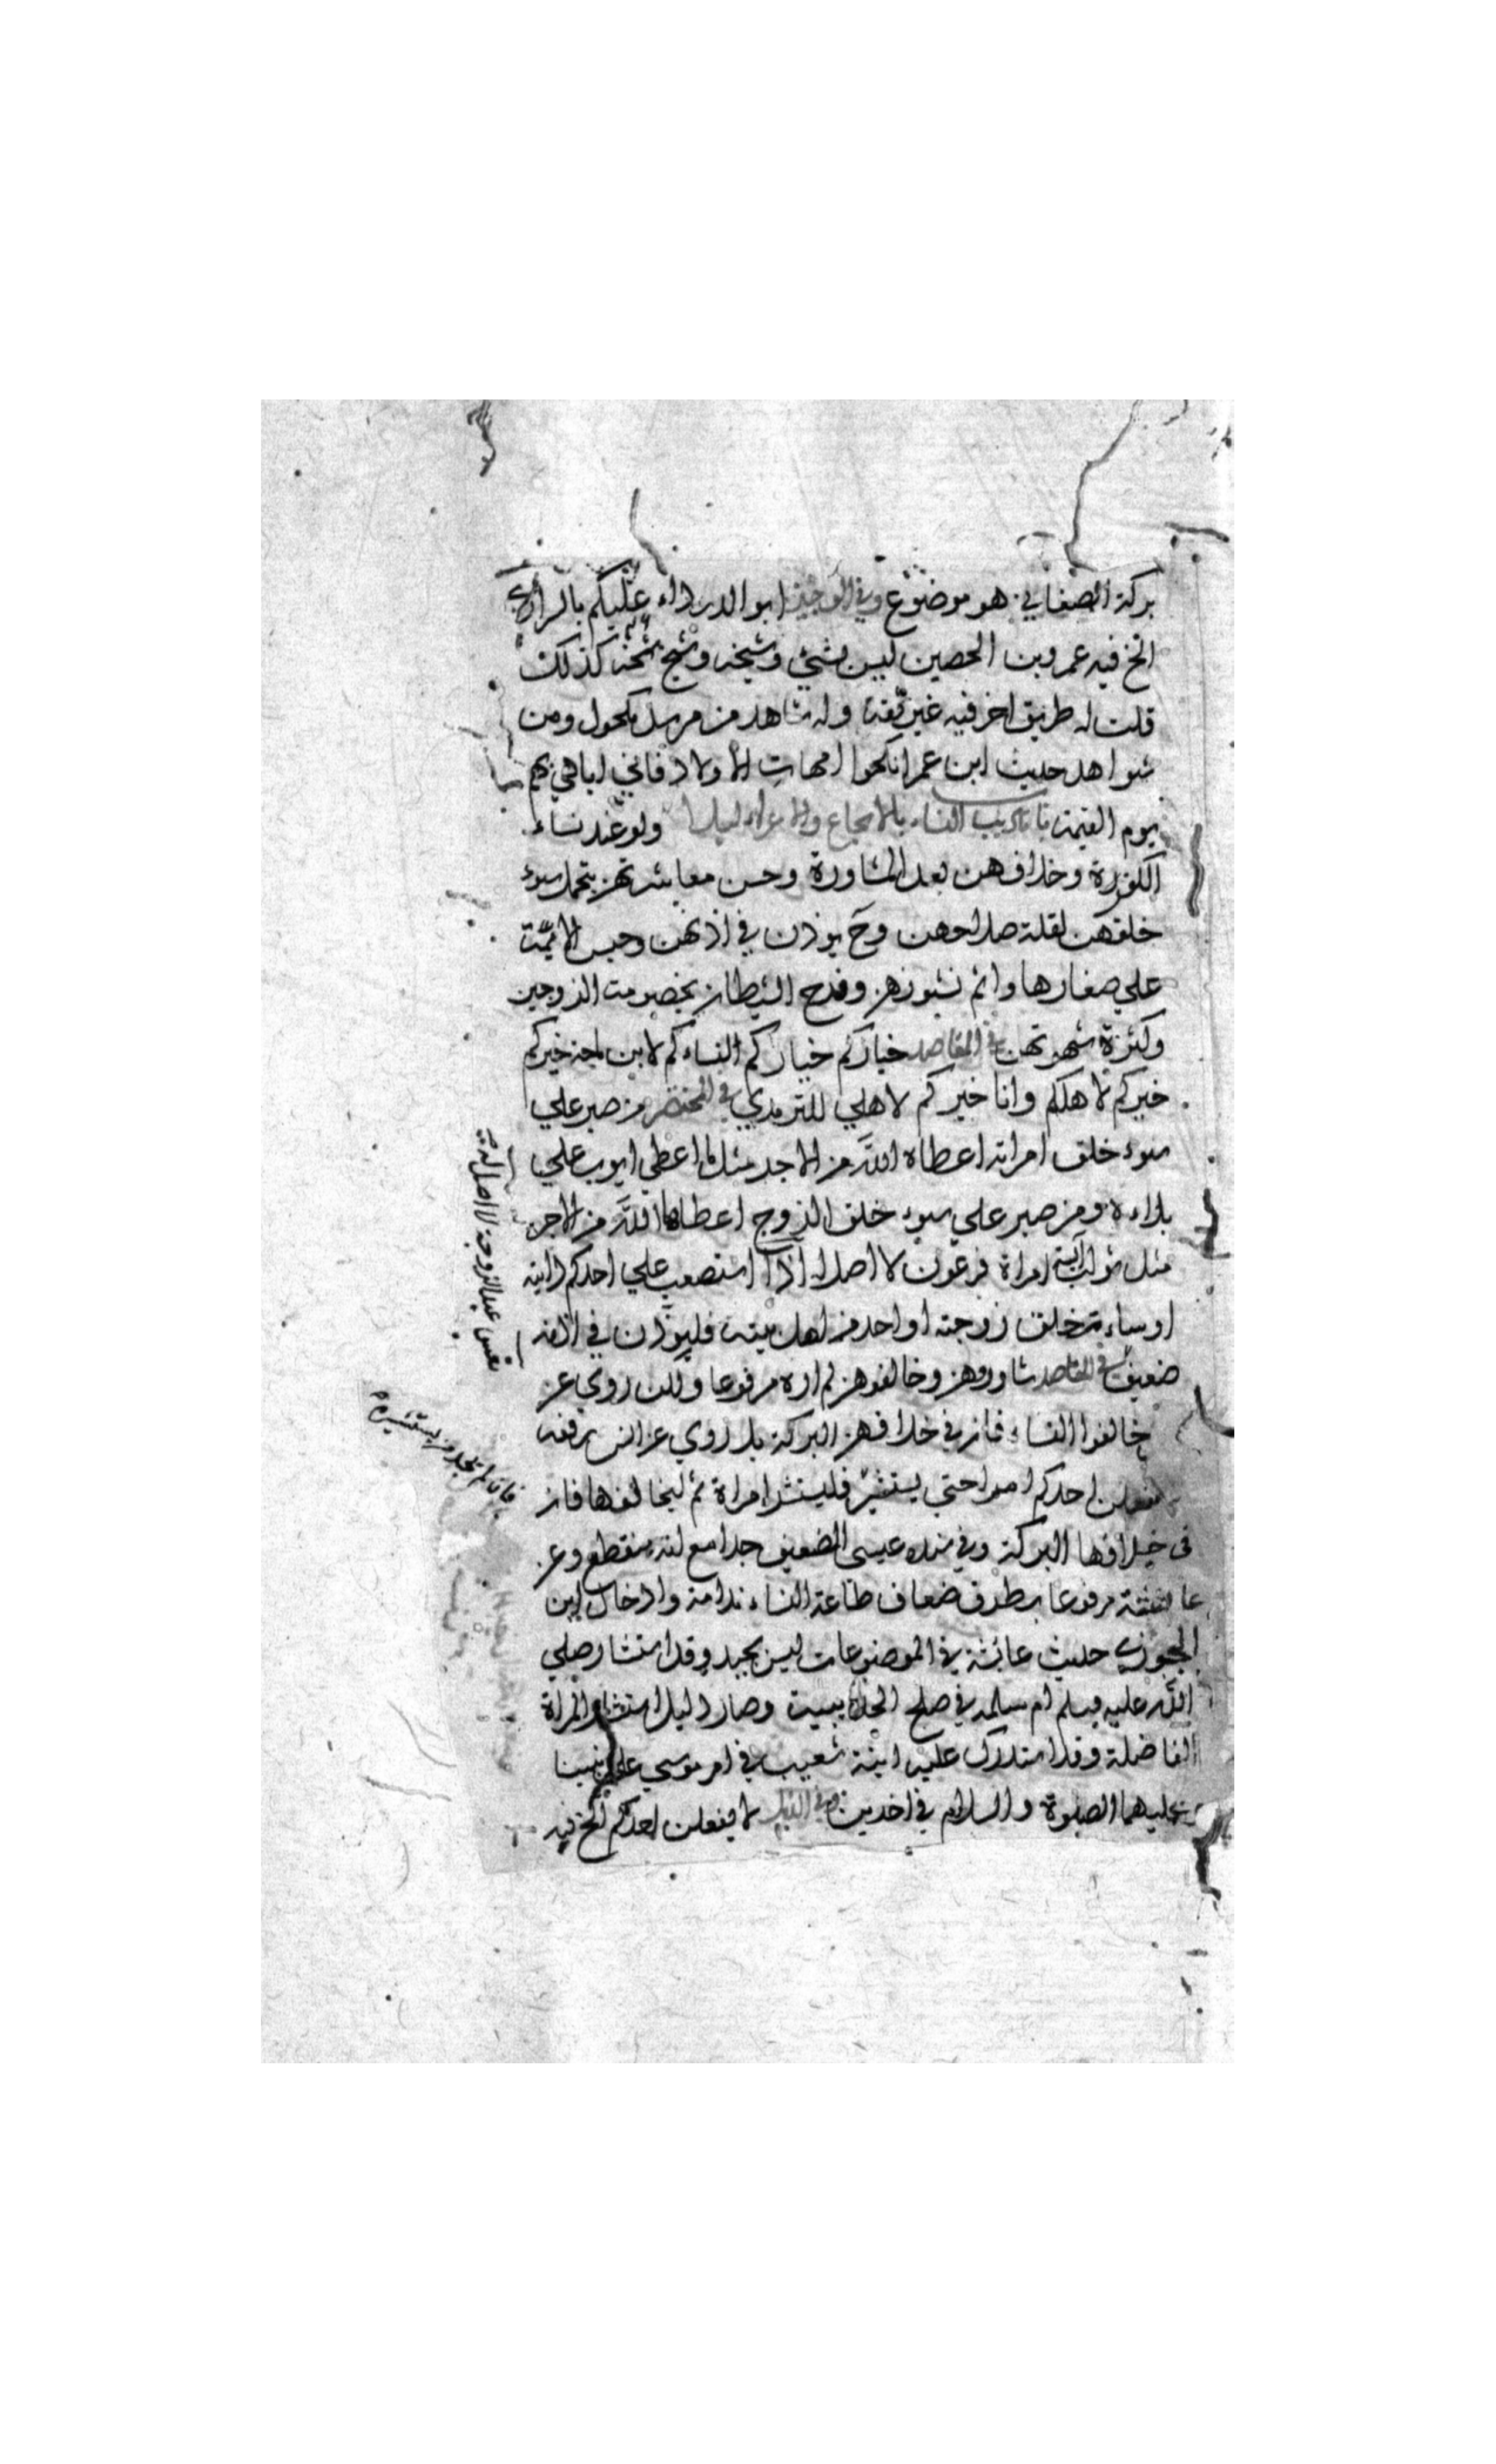 بركة الصغاني هو موضوع وفي الوجيز ابو الدرداء عليكم بالسراري
الخ فيه عمرو بن الحصين ليس بشئ وشيخه وشيخ شيخه كذلك
قلت له طريق اخر فيه غير ثقة وله شاهد من مرسل مكحول ومن
شواهد حديث ابن عمر انكحوا امهات الاولاد فاني اباهي بهم
يوم القيمة باب تاديب النساء بالامجاع والاعراء ليلا ولو عند نساء
الكفرة وخلافهن بعد المشاورة وحسن معاشرتهن بتحمل سوء
خلقهن لقلة صلاحهن وح يوذن في اذنهن وحبس الايمة
علي صغارها واثم نشوزهن وفرح الشيطان بخصومت الزوجين
وكثرة شهوتهن في المقاصد خياركم خياركم النساءكم لابن ماجة خيركم
خيركم لاهلكم وانا خيركم لاهلي للترمذي في المختصر من صبر علي
سوء خلق امراته اعطاه الله من الاجر مثل ما اعطي ايوب علي
بلاءه ومن صبر علي سوء خلق الزوج اعطاها الله من الاجر
مثل ثواب آسية امراة فرعون لا اصل له اذا استصعب علي احدكم دابته
او ساءت خلق زوجته او احد من اهل بيته فليوذن في اذنه
ضعيف في المقاصد شاوروهن وخالفوهن لم اره مرفوعا ولكن روي عن
خالفوا النساء فان في خلافهن البركة بل روي عن انس يرفعه
لا يفعلن احدكم امرا حتي يستشير فليستشر امراة ثم ليخالفها فان
في خلافها البركة وفي سنده عيسى الضعيف جدا مع انه منقطع وعن
عائشة مرفوعا بطرق ضعاف طاعة النساء ندامة وادخال ابن
الجوزي حديث عائشة في الموضوعات ليس بجيد وقد استشار صلي
الله عليه وسلم ام سلمة في صلح الحديبية وصار دليل استشارة المراة
الفاضلة وقد استدرك عليه ابنة شعيب في امر موسي علي نبينا
عليهما الصلوة والسلام في اخدين وفي الذيل لا يفعلن احدكم الخ فيه
تعس عبد الزوجة لا اصل له
فان لم يجد من يستشيره